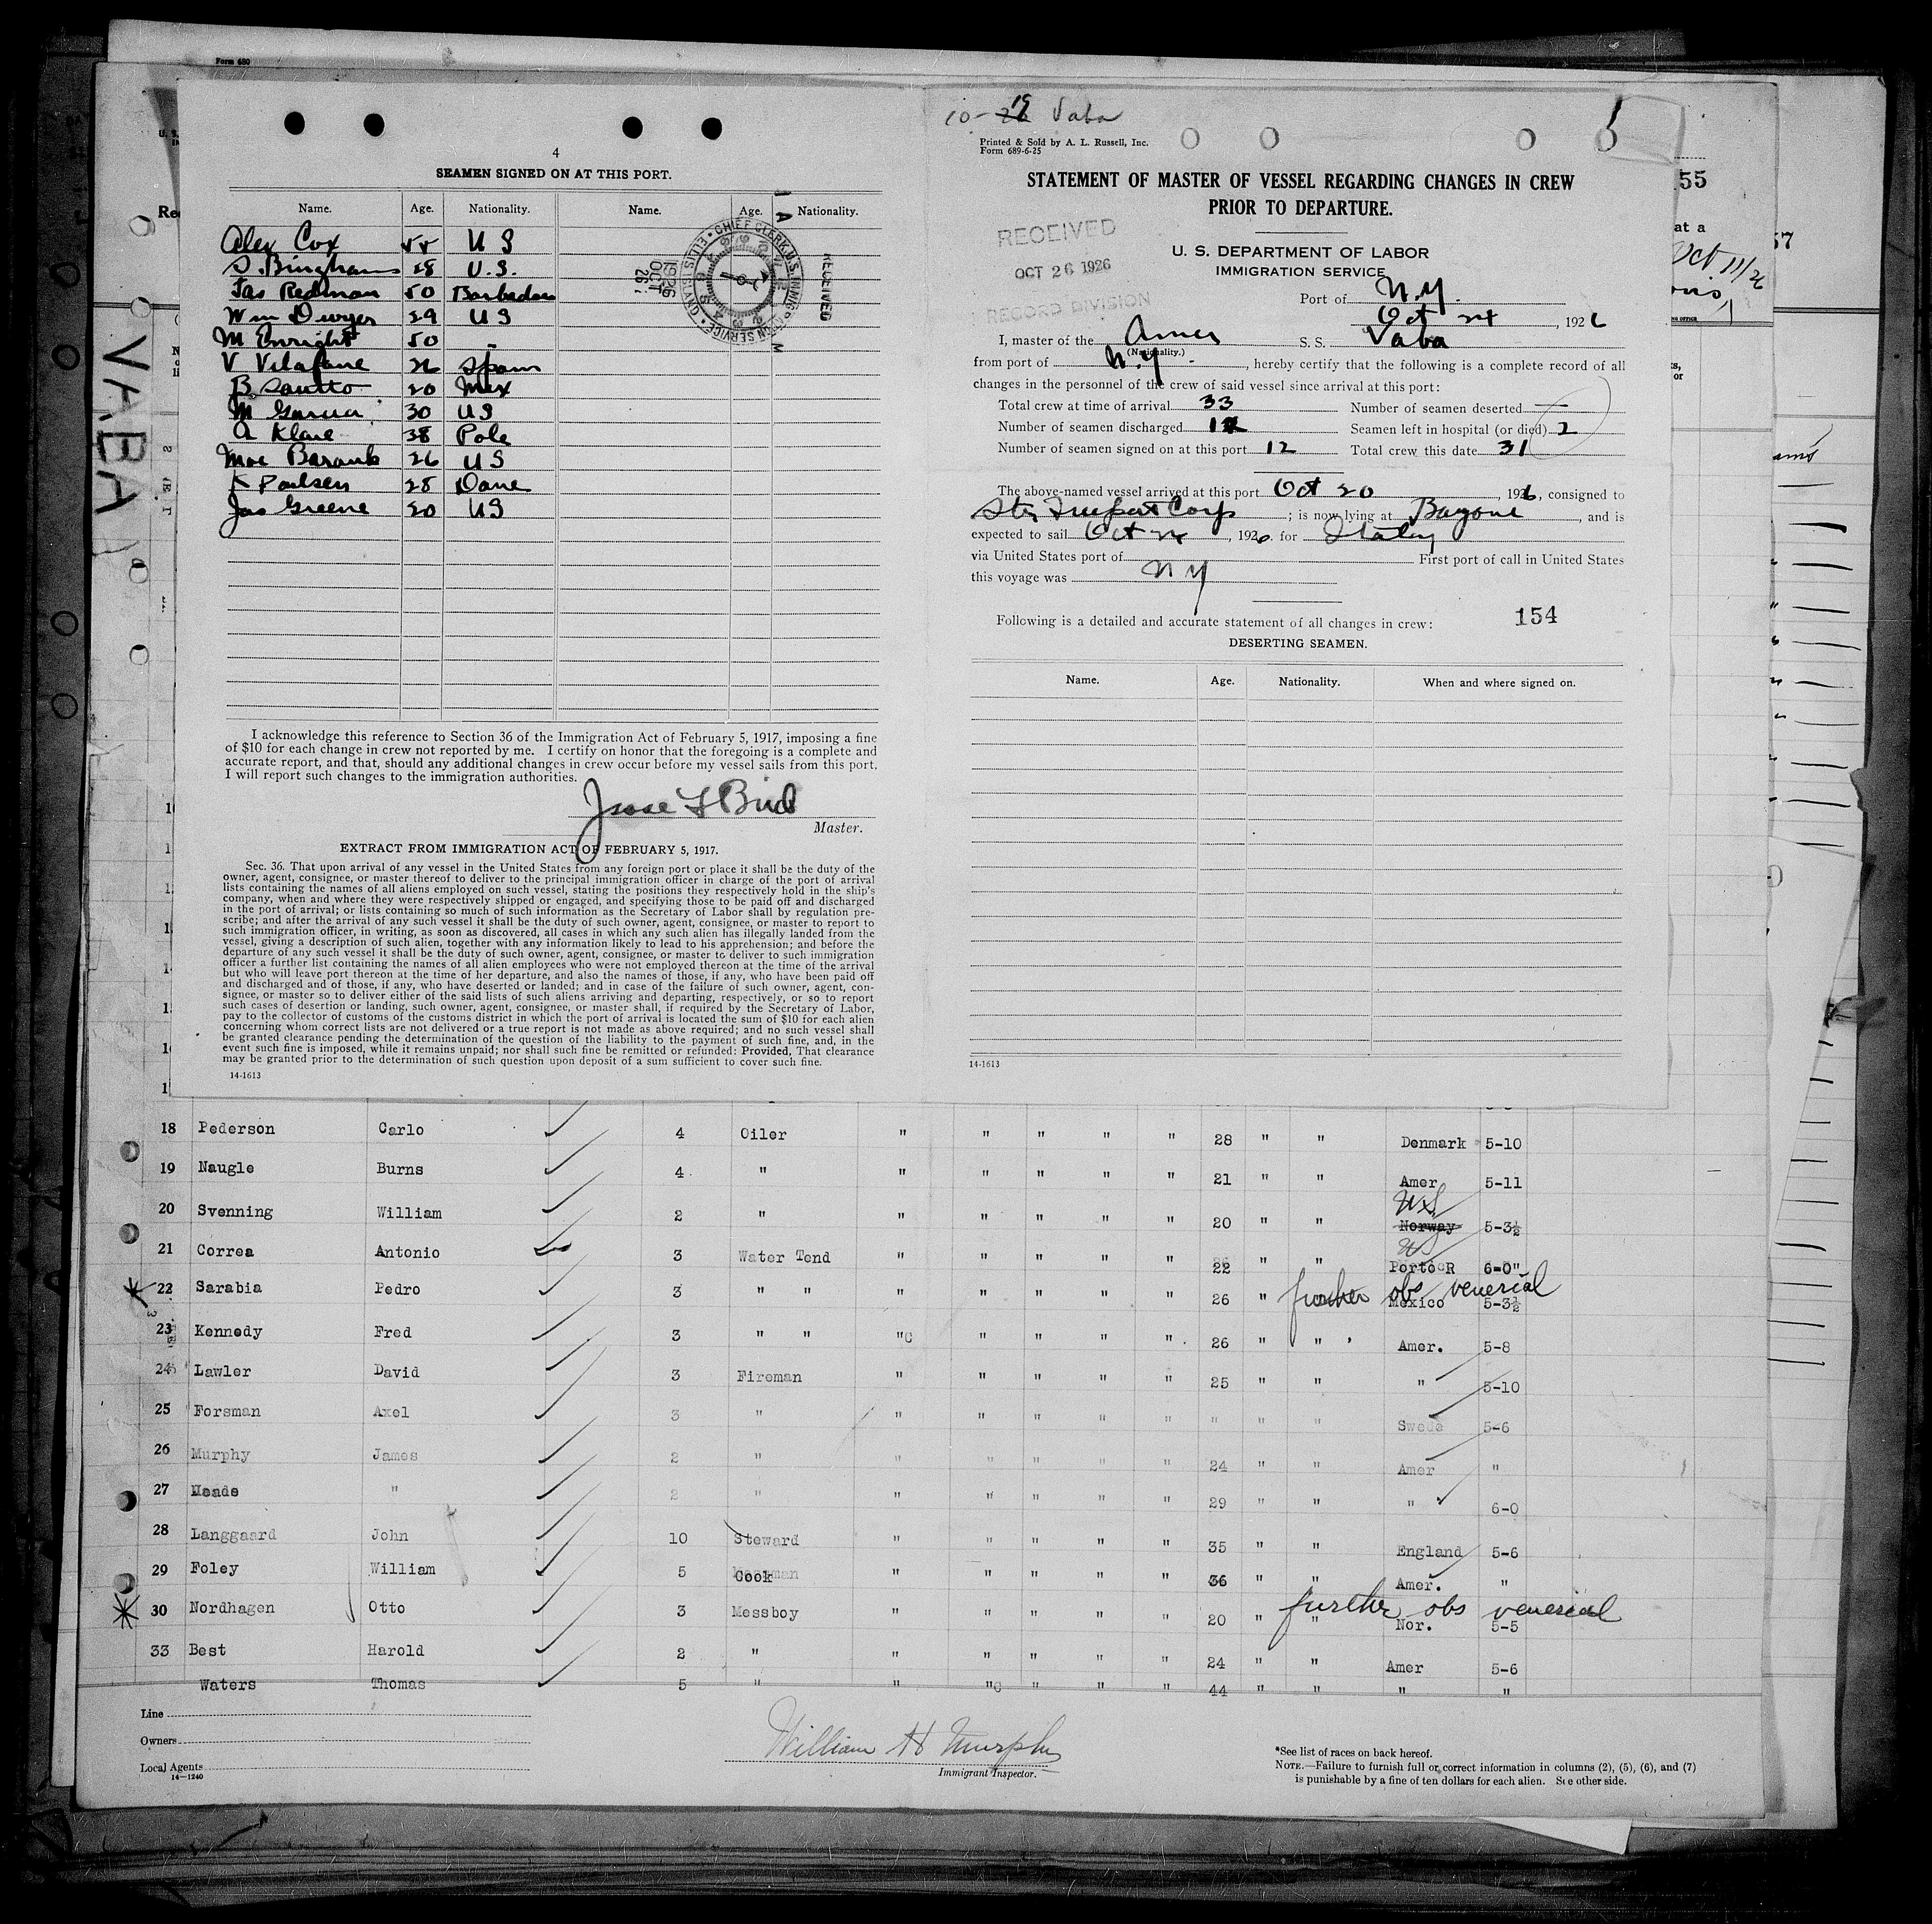 Form 680
VABA
4
SEAMEN SIGNED ON AT THIS PORT.
Name. Age. Nationality. Name. Age. Nationality.
Alex Cox 55 U S
S. Bingham 28 U.S.
Jas Redman 50 Barbados
Wm Dwyer 29 US
M Enright 50 -
V Vilafane 26 Spain
B 20 Mex
M Garcia 30 US
A Klane 38 Pole
Moe 26 US
K Paulsen 28 Dane
Jas Greene 20 US
CHIEF CLERK, U.S. IMMIGRATION SERVICE ELLIS ISLAND
RECEIVED
1926 OCT 26
I acknowledge this reference to Section 36 of the Immigration Act of February 5, 1917, imposing a fine
of $10 for each change in crew not reported by me. I certify on honor that the foregoing is a complete and
accurate report, and that, should any additional changes in crew occur before my vessel sails from this port,
I will report such changes to the immigration authorities.
Jesse L Bird
Master.
EXTRACT FROM IMMIGRATION ACT OF FEBRUARY 5, 1917.
Sec. 36. That upon arrival of any vessel in the United States from any foreign port or place it shall be the duty of the
owner, agent, consignee, or master thereof to deliver to the principal immigration officer in charge of the port of arrival
lists containing the names of all aliens employed on such vessel, stating the positions they respectively hold in the ship's
company, when and where they were respectively shipped or engaged, and specifying those to be paid off and discharged
in the port of arrival; or lists containing so much of such information as the Secretary of Labor shall by regulation pre-
scribe; and after the arrival of any such vessel it shall be the duty of such owner, agent, consignee, or master to report to
such immigration officer, in writing, as soon as discovered, all cases in which any such alien has illegally landed from the
vessel, giving a description of such alien, together with any information likely to lead to his apprehension; and before the
departure of any such vessel it shall be the duty of such owner, agent, consignee, or master to deliver to such immigration
officer a further list containing the names of all alien employees who were not employed thereon at the time of the arrival
but who will leave port thereon at the time of her departure, and also the names of those, if any, who have been paid off
and discharged and of those, if any, who have deserted or landed; and in case of the failure of such owner, agent, con-
signee, or master so to deliver either of the said lists of such aliens arriving and departing, respectively, or so to report
such cases of desertion or landing, such owner, agent, consignee, or master shall, if required by the Secretary of Labor,
pay to the collector of customs of the customs district in which the port of arrival is located the sum of $10 for each alien
concerning whom correct lists are not delivered or a true report is not made as above required; and no such vessel shall
be granted clearance pending the determination of the question of the liability to the payment of such fine, and, in the
event such fine is imposed, while it remains unpaid; nor shall such fine be remitted or refunded: Provided, That clearance
may be granted prior to the determination of such question upon deposit of a sum sufficient to cover such fine.
14-1613
10-19 Vaba
Printed & Sold by A. L. Russell, Inc.
Form 689-6-25
STATEMENT OF MASTER OF VESSEL REGARDING CHANGES IN CREW
PRIOR TO DEPARTURE.
RECEIVED
OCT 26 1926
RECORD DIVISION
U. S. DEPARTMENT OF LABOR
IMMIGRATION SERVICE
Port of N.Y.
Oct 24, 1926
I, master of the Amer S. S. Vaba
(Nationality.)
from port of N.Y., hereby certify that the following is a complete record of all
changes in the personnel of the crew of said vessel since arrival at this port:
Total crew at time of arrival 33 Number of seamen deserted —
Number of seamen discharged 12 Seamen left in hospital (or died) 2
Number of seamen signed on at this port 12 Total crew this date 31
The above-named vessel arrived at this port Oct 20, 1926, consigned to
Corp; is now lying at Bayone, and is
expected to sail Oct 24, 1926 for Italy
via United States port of First port of call in United States
this voyage was N Y
Following is a detailed and accurate statement of all changes in crew: 154
DESERTING SEAMEN.
Name. Age. Nationality. When and where signed on.
14-1613
55
at a
57
Oct 11/26
18 Pederson Carlo 4 Oiler " " " " " 28 " " Denmark 5-10
19 Naugle Burns 4 " " " " " " 21 " " Amer 5-11
20 Svenning William 2 " " " " " " 20 " " US Norway 5-3½
21 Correa Antonio 3 Water Tend " " " " " 22 " " US Porto R 6-0"
22 Sarabia Pedro 3 " " " " " " " 26 " further obs venerial Mexico 5-3½
23 Kennedy Fred 3 " " "C " " " " 26 " " Amer. 5-8
24 Lawler David 3 Fireman " " " " " 25 " " " 5-10
25 Forsman Axel 3 " " " " " " " " " Swede 5-6
26 Murphy James 2 " " " " " " 24 " " Amer "
27 Meade " 2 " " " " " " 29 " " " 6-0
28 Langgaard John 10 Steward " " " " " 35 " " England 5-6
29 Foley William 5 Cook " " " " " 36 " " Amer. "
30 Nordhagen Otto 3 Messboy " " " " " 20 " " further obs venerial Nor. 5-5
33 Best Harold 2 " " " " " " 24 " " Amer 5-6
Waters Thomas 5 " " "C " " " 44 " " " "
Line
Owners
Local Agents
14-1240
William H Murphy
Immigrant Inspector.
*See list of races on back hereof.
NOTE.—Failure to furnish full or correct information in columns (2), (5), (6), and (7)
is punishable by a fine of ten dollars for each alien. See other side.